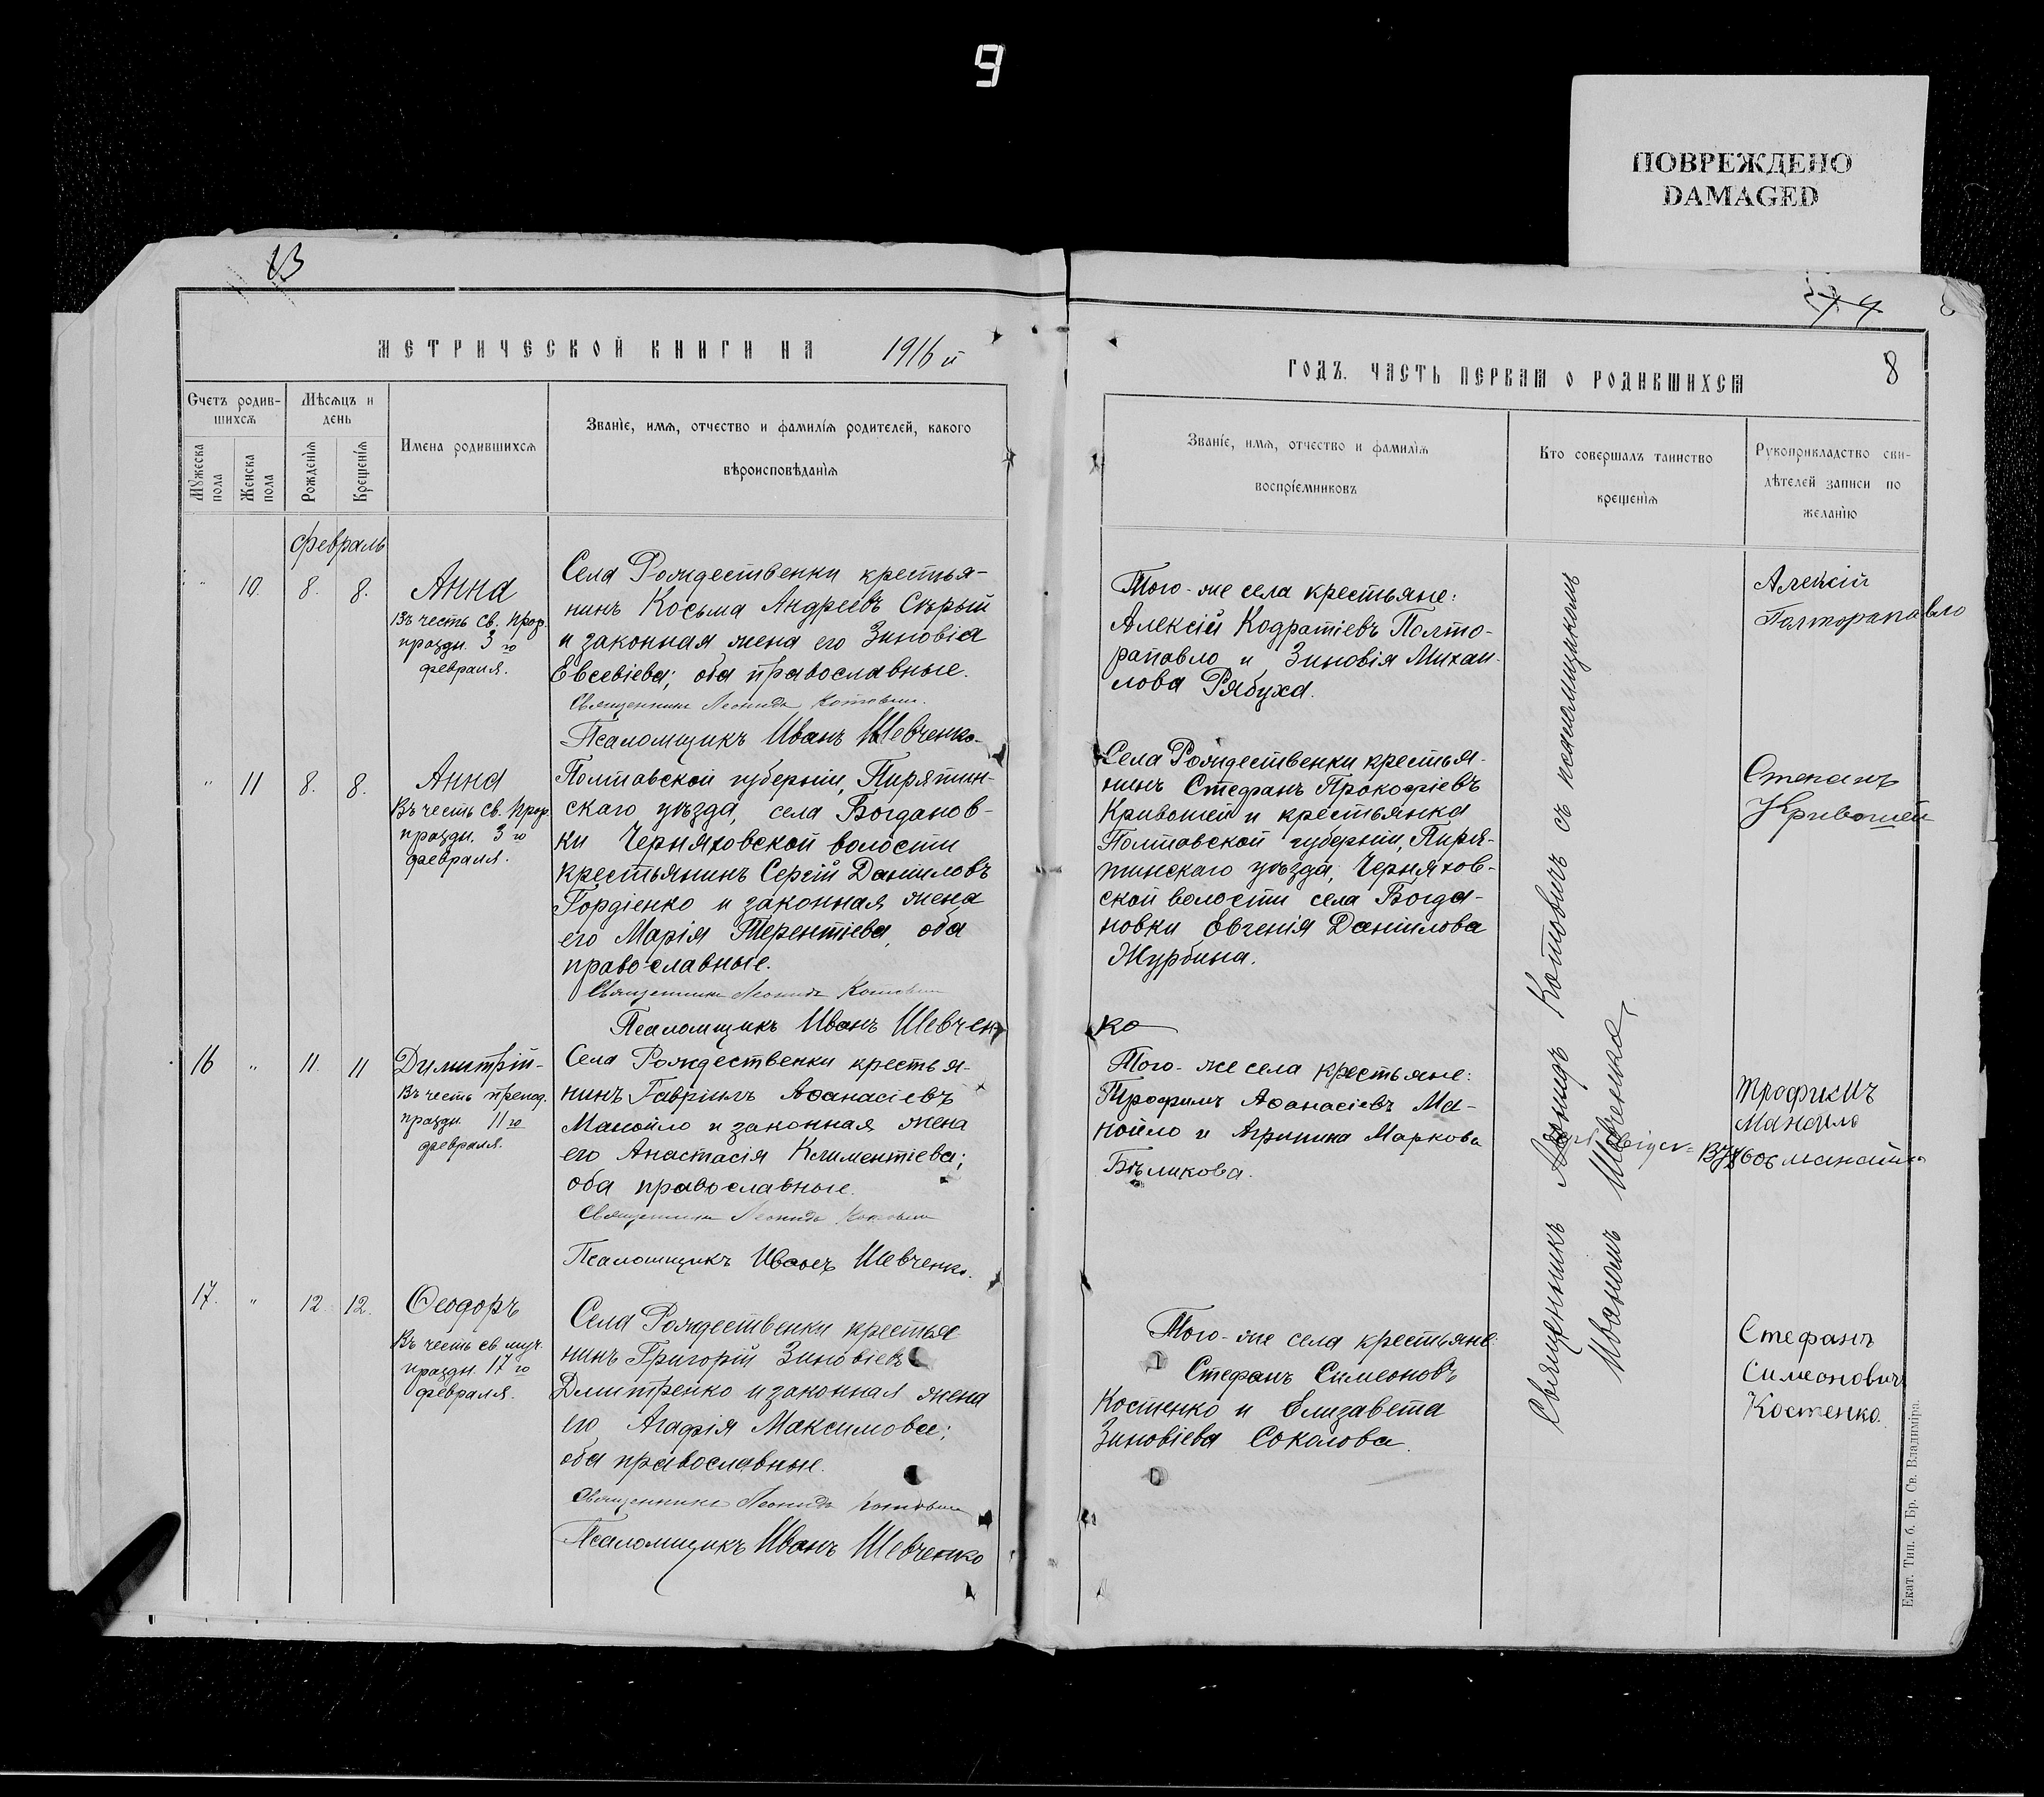 9
ПОВРЕЖДЕНО
DAMAGED
13
МЕТРИЧЕСКОЙ КНИГИ НА 1916 й
Счетъ родив-
шихся
Мѣсяцъ и
день
Имена родившихся
Званіе, имя, отчество и фамилія родителей, какого
вѣроисповѣданія
Мужеска пола
Женска пола
Рожденія
Крещенія
Февраль
" 10. 8. 8. Анна
Въ честь св. прор.
праздн. 3 го
февраля.
Села Рождественки крестья-
нинъ Косьма Андреевъ Сѣрый
и законная жена его Зиновія
Евсевіева; оба православные.
Священникъ Леонидъ Котовичъ.
Псаломщикъ Иванъ Шевченко.
" 11 8. 8. Анна
Въ честь св. прор.
праздн. 3 го
февраля.
Полтавской губерніи, Пирятин-
скаго уѣзда, села Богданов-
ки Черняховской волости
крестьянинъ Сергій Даніиловъ
Гордіенко и законная жена
его Марія Терентіева, оба
православные.
Священникъ Леонидъ Котовичъ
Псаломщикъ Иванъ Шевчен
16 " 11. 11 Димитрій-
Въ честь препод.
праздн. 11 го
февраля.
Села Рождественки крестья-
нинъ Гавріилъ Аѳанасіевъ
Манойло и законная жена
его Анастасія Климентіева;
оба православные.
Священникъ Леонидъ Котовичъ
Псаломщикъ Иванъ Шевченко.
17. " 12. 12. Ѳеодоръ
Въ честь св муч.
праздн. 17 го
февраля.
Села Рождественки крестья-
нинъ Григорій Зиновіевъ
Дмитренко и законная жена
его Агафія Максимова;
оба православные.
Священникъ Леонидъ Котовичъ
Псаломщикъ Иванъ Шевченко
8
ГОДЪ. ЧАСТЬ ПЕРВАЯ О РОДИВШИХСЯ
Званіе, имя, отчество и фамилія
воспріемниковъ
Кто совершалъ таинство
крещенія
Рукоприкладство сви-
дѣтелей записи по
желанію
Того-же села крестьяне:
Алексій Кодратіевъ Полто-
рапавло и Зиновія Михаи-
лова Рябуха.
Села Рождественки крестья-
нинъ Стефанъ Прокофіевъ
Кривошей и крестьянка
Полтавской губерніи, Пиря-
тинскаго уѣзда, Черняхов-
ской волости села Богда-
новки Евгенія Даніилова
Журбина.
ко
Того-же села крестьяне:
Трофимъ Аѳанасіевъ Ма-
нойло и Агрипина Маркова
Бѣликова.
Того-же села крестьяне:
Стефанъ Симеоновъ
Костенко и Елизавета
Зиновіева Соколова.
Священникъ Леонидъ Котовичъ съ псаломщикомъ
Иваномъ Шевченко
Алексій
Полторапавло
Степанъ
Кривошей
Трофимъ
Манойло
Стефанъ
Симеоновичъ
Костенко.
Екат. Тип. б. Бр. Св. Владиміра.